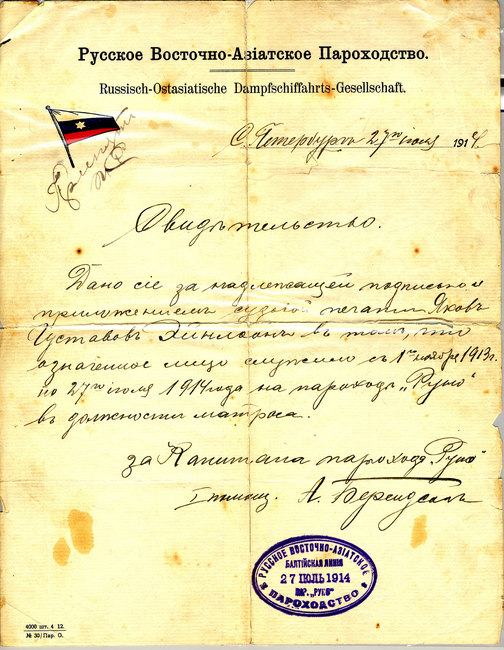 Русское Восточно-Азіатское Пароходство.
Russisch-Ostasiatische Dampfschiffahrts-Gesellschaft.
С. Петербургъ 27го іюля 1914.
Свидѣтельство.
Дано сіе за надлежащей подписью и
приложеніемъ судовой печати Яковъ
Густавовъ въ томъ, что
означенное лицо служило съ 1го ноября 1913г.
по 27го іюля 1914 года на пароходѣ „Руно“
въ должности матроса.
за Капитана парохода „Руно“
I помощ. А.
РУССКОЕ ВОСТОЧНО-АЗІАТСКОЕ
БАЛТІЙСКАЯ ЛИНІЯ
27 ІЮЛЬ 1914
ПАР. „РУНО“
ПАРОХОДСТВО
4000 шт. 4 12.
№ 30/Пар. О.